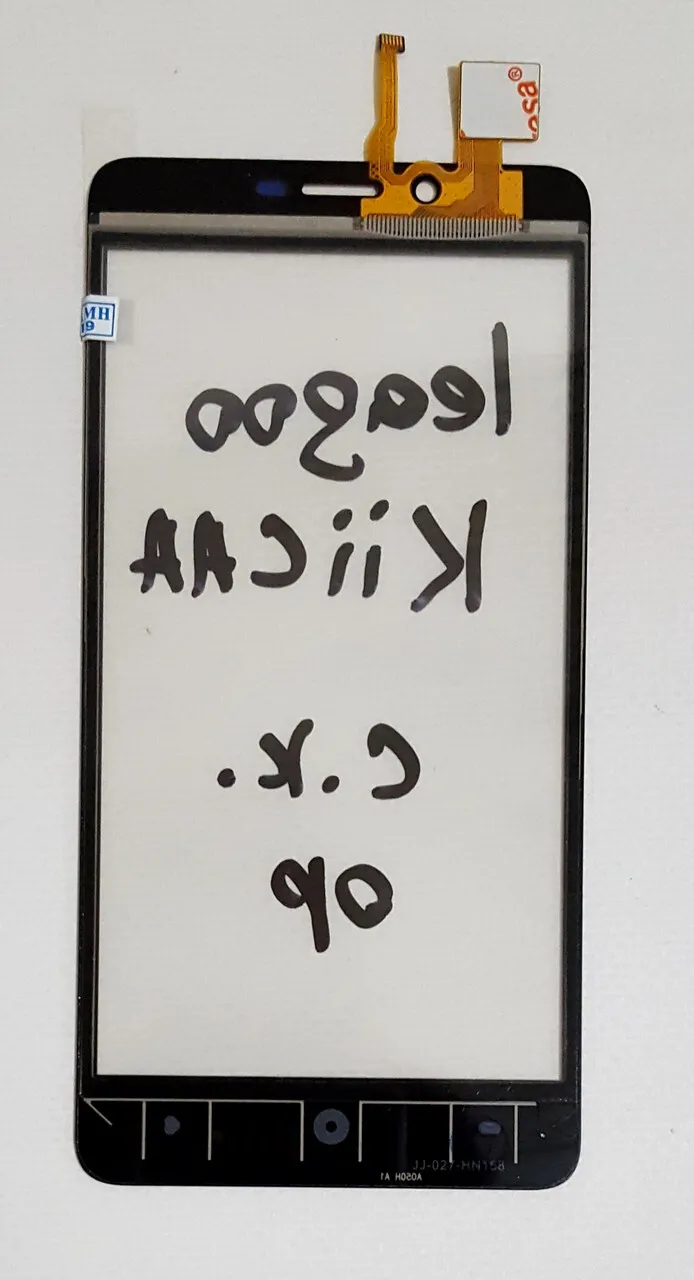 esa®
MH
19
leagoo
KiiCAA
C.K.
op
JJ-027-HN158
A050H A1